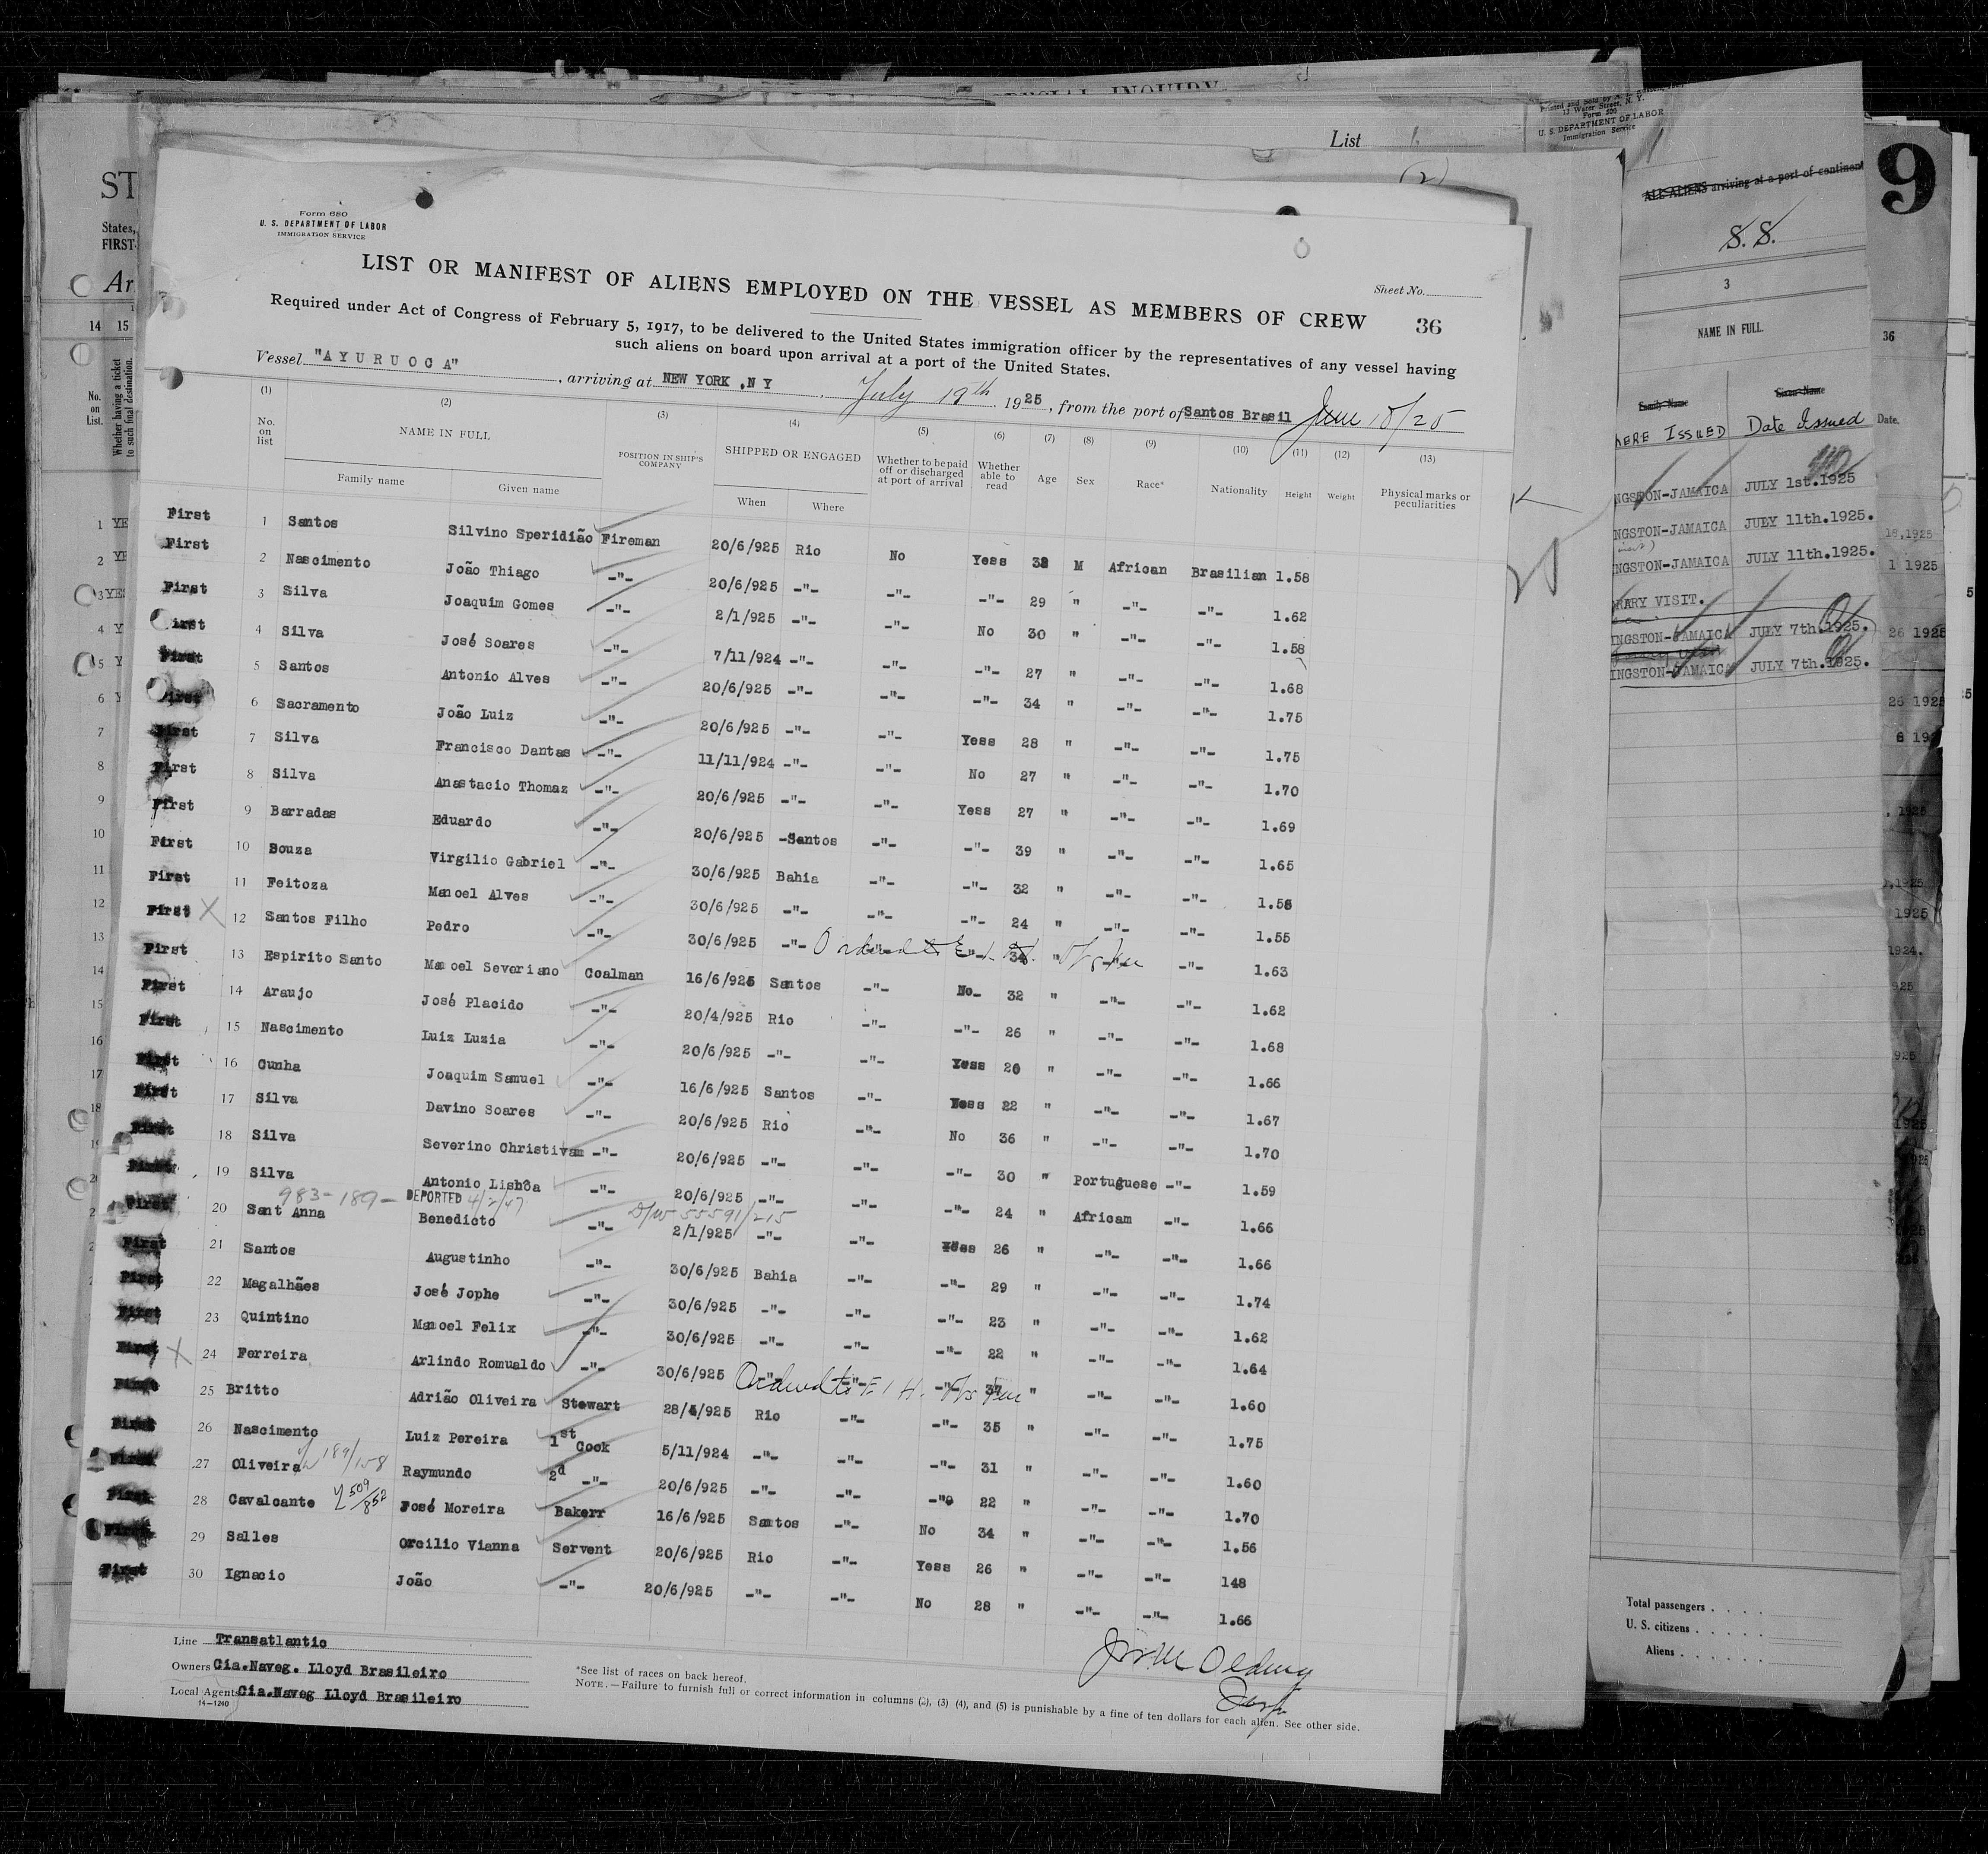 SPECIAL INQUIRY
List
Form 680
U. S. DEPARTMENT OF LABOR
IMMIGRATION SERVICE
Sheet No.
LIST OR MANIFEST OF ALIENS EMPLOYED ON THE VESSEL AS MEMBERS OF CREW 36
Required under Act of Congress of February 5, 1917, to be delivered to the United States immigration officer by the representatives of any vessel having
such aliens on board upon arrival at a port of the United States.
Vessel "AYURUOCA", arriving at NEW YORK ,N Y, July 19th 1925, from the port of Santos Brasil June 18/25
(1) (2) (3) (4) (5) (6) (7) (8) (9) (10) (11) (12) (13)
No. on list NAME IN FULL POSITION IN SHIP'S COMPANY SHIPPED OR ENGAGED Whether to be paid off or discharged at port of arrival Whether able to read Age Sex Race* Nationality Height Weight Physical marks or peculiarities
Family name Given name When Where
First 1 Santos Silvino Speridião Fireman 20/6/925 Rio No Yess 38 M African Brasilian 1.58
First 2 Nascimento João Thiago -"- 20/6/925 -"- -"- -"- 29 " -"- -"- 1.62
First 3 Silva Joaquim Gomes -"- 2/1/925 -"- -"- No 30 " -"- -"- 1.58
First 4 Silva José Soares -"- 7/11/924 -"- -"- -"- 27 " -"- -"- 1.68
First 5 Santos Antonio Alves -"- 20/6/925 -"- -"- -"- 34 " -"- -"- 1.75
First 6 Sacramento João Luiz -"- 20/6/925 -"- -"- Yess 28 " -"- -"- 1.75
First 7 Silva Francisco Dantas -"- 11/11/924 -"- -"- No 27 " -"- -"- 1.70
First 8 Silva Anastacio Thomaz -"- 20/6/925 -"- -"- Yess 27 " -"- -"- 1.69
First 9 Barradas Eduardo -"- 20/6/925 -Santos -"- -"- 39 " -"- -"- 1.65
First 10 Souza Virgilio Gabriel -"- 30/6/925 Bahia -"- -"- 32 " -"- -"- 1.58
First 11 Feitoza Manoel Alves -"- 30/6/925 -"- -"- -"- 24 " -"- -"- 1.55
First X 12 Santos Filho Pedro -"- 30/6/925 -"- Ordered to E. I. H. 34 " -"- 1.63
First 13 Espirito Santo Manoel Severiano Coalman 16/6/925 Santos -"- No- 32 " -"- -"- 1.62
First 14 Araujo José Placido -"- 20/4/925 Rio -"- -"- 26 " -"- -"- 1.68
First 15 Nascimento Luiz Luzia -"- 20/6/925 -"- -"- Yess 20 " -"- -"- 1.66
First 16 Cunha Joaquim Samuel -"- 16/6/925 Santos -"- Yess 22 " -"- -"- 1.67
First 17 Silva Davino Soares -"- 20/6/925 Rio -"- No 36 " -"- -"- 1.70
First 18 Silva Severino Christivam -"- 20/6/925 -"- -"- -"- 30 " Portuguese -"- 1.59
First 19 Silva Antonio Lisbôa -"- 20/6/925 -"- -"- -"- 24 " Africam -"- 1.66
983-189- DEPORTED 4/2/47 55591/215
First 20 Sant Anna Benedicto -"- 2/1/925 -"- -"- Yess 26 " -"- -"- 1.66
First 21 Santos Augustinho -"- 30/6/925 Bahia -"- -"- 29 " -"- -"- 1.74
First 22 Magalhães José Jophe -"- 30/6/925 -"- -"- -"- 23 " -"- -"- 1.62
First 23 Quintino Manoel Felix -"- 30/6/925 -"- -"- -"- 22 " -"- -"- 1.64
First X 24 Ferreira Arlindo Romualdo -"- 30/6/925 -"- Ordered to E. I. H. -"- 37 " -"- -"- 1.60
First 25 Britto Adrião Oliveira Stewart 28/4/925 Rio -"- -"- 35 " -"- -"- 1.75
First 26 Nascimento Luiz Pereira 1st Cook 5/11/924 -"- -"- -"- 31 " -"- -"- 1.60
First 27 Oliveira 189/158 Raymundo 2d -"- 20/6/925 -"- -"- -"- 22 " -"- -"- 1.70
First 28 Cavalcante 509/852 José Moreira Bakerr 16/6/925 Santos -"- No 34 " -"- -"- 1.56
First 29 Salles Orcilio Vianna Servent 20/6/925 Rio -"- Yess 26 " -"- -"- 148
First 30 Ignacio João -"- 20/6/925 -"- -"- No 28 " -"- -"- 1.66
Line Transatlantic
Owners Cia.Naveg. Lloyd Brasileiro
Local Agents Cia.Naveg Lloyd Brasileiro
14-1240
*See list of races on back hereof.
NOTE.—Failure to furnish full or correct information in columns (2), (3) (4), and (5) is punishable by a fine of ten dollars for each alien. See other side.
ST
States,
FIRST-
Ar
14 15
No. on List.
Whether having a ticket to such final destination.
13 Water Street, N. Y.
Form 500
U. S. DEPARTMENT OF LABOR
Immigration Service
ALL ALIENS arriving at a port of continent
S.S.
3
NAME IN FULL.
Family Name Given Name
HERE ISSUED Date Issued
NGSTON-JAMAICA JULY 1st.1925
NGSTON-JAMAICA JULY 11th.1925.
NGSTON-JAMAICA JULY 11th.1925.
RARY VISIT.
INGSTON-JAMAICA JULY 7th.1925.
INGSTON-JAMAICA JULY 7th.1925.
Total passengers . . . .
U. S. citizens . . . . .
Aliens . . . . . .
9
36
Date.
18,1925
1 1925
26 1925
25 1925